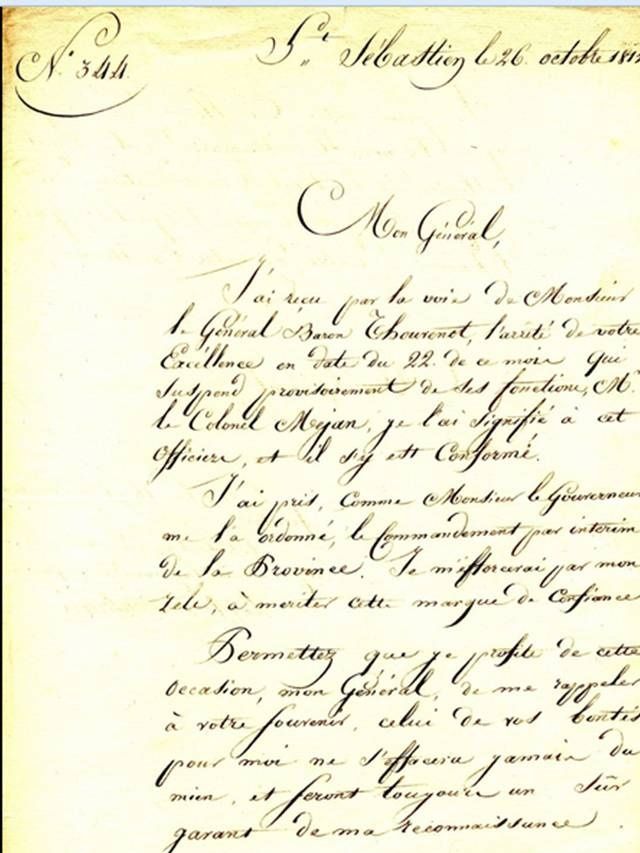 N.° 344.
S.t Sébastien le 26. octobre 181
Mon Général,
J'ai reçu par la voie de Monsieur
le Général Baron Thouvenot, l'arrêté de votre
Excéllence en date du 22. de ce mois qui
suspend provisoirement de ses fonctions, M.r
le Colonel Mejan, je l'ai signifié à cet
Officier, et il s'y est Conformé.
J'ai pris, Comme Monsieur le Gouverneur
me l'a ordonné, le Commandement par interim
de la Province. Je m'efforcerai par mon
zele, à meriter cette marque de Confiance
Permettez que je profite de cette
occasion, mon Général, de me rappeler
à votre souvenir, celui de vos bontés
pour moi ne s'effacera jamais du
mien, et seront toujours un sûr
garant de ma reconnaissance.